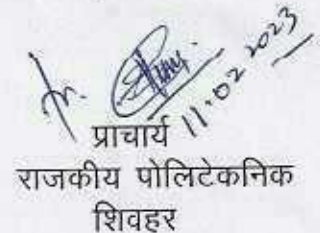 11.02.2023
प्राचार्य
राजकीय पोलिटेकनिक
शिवहर